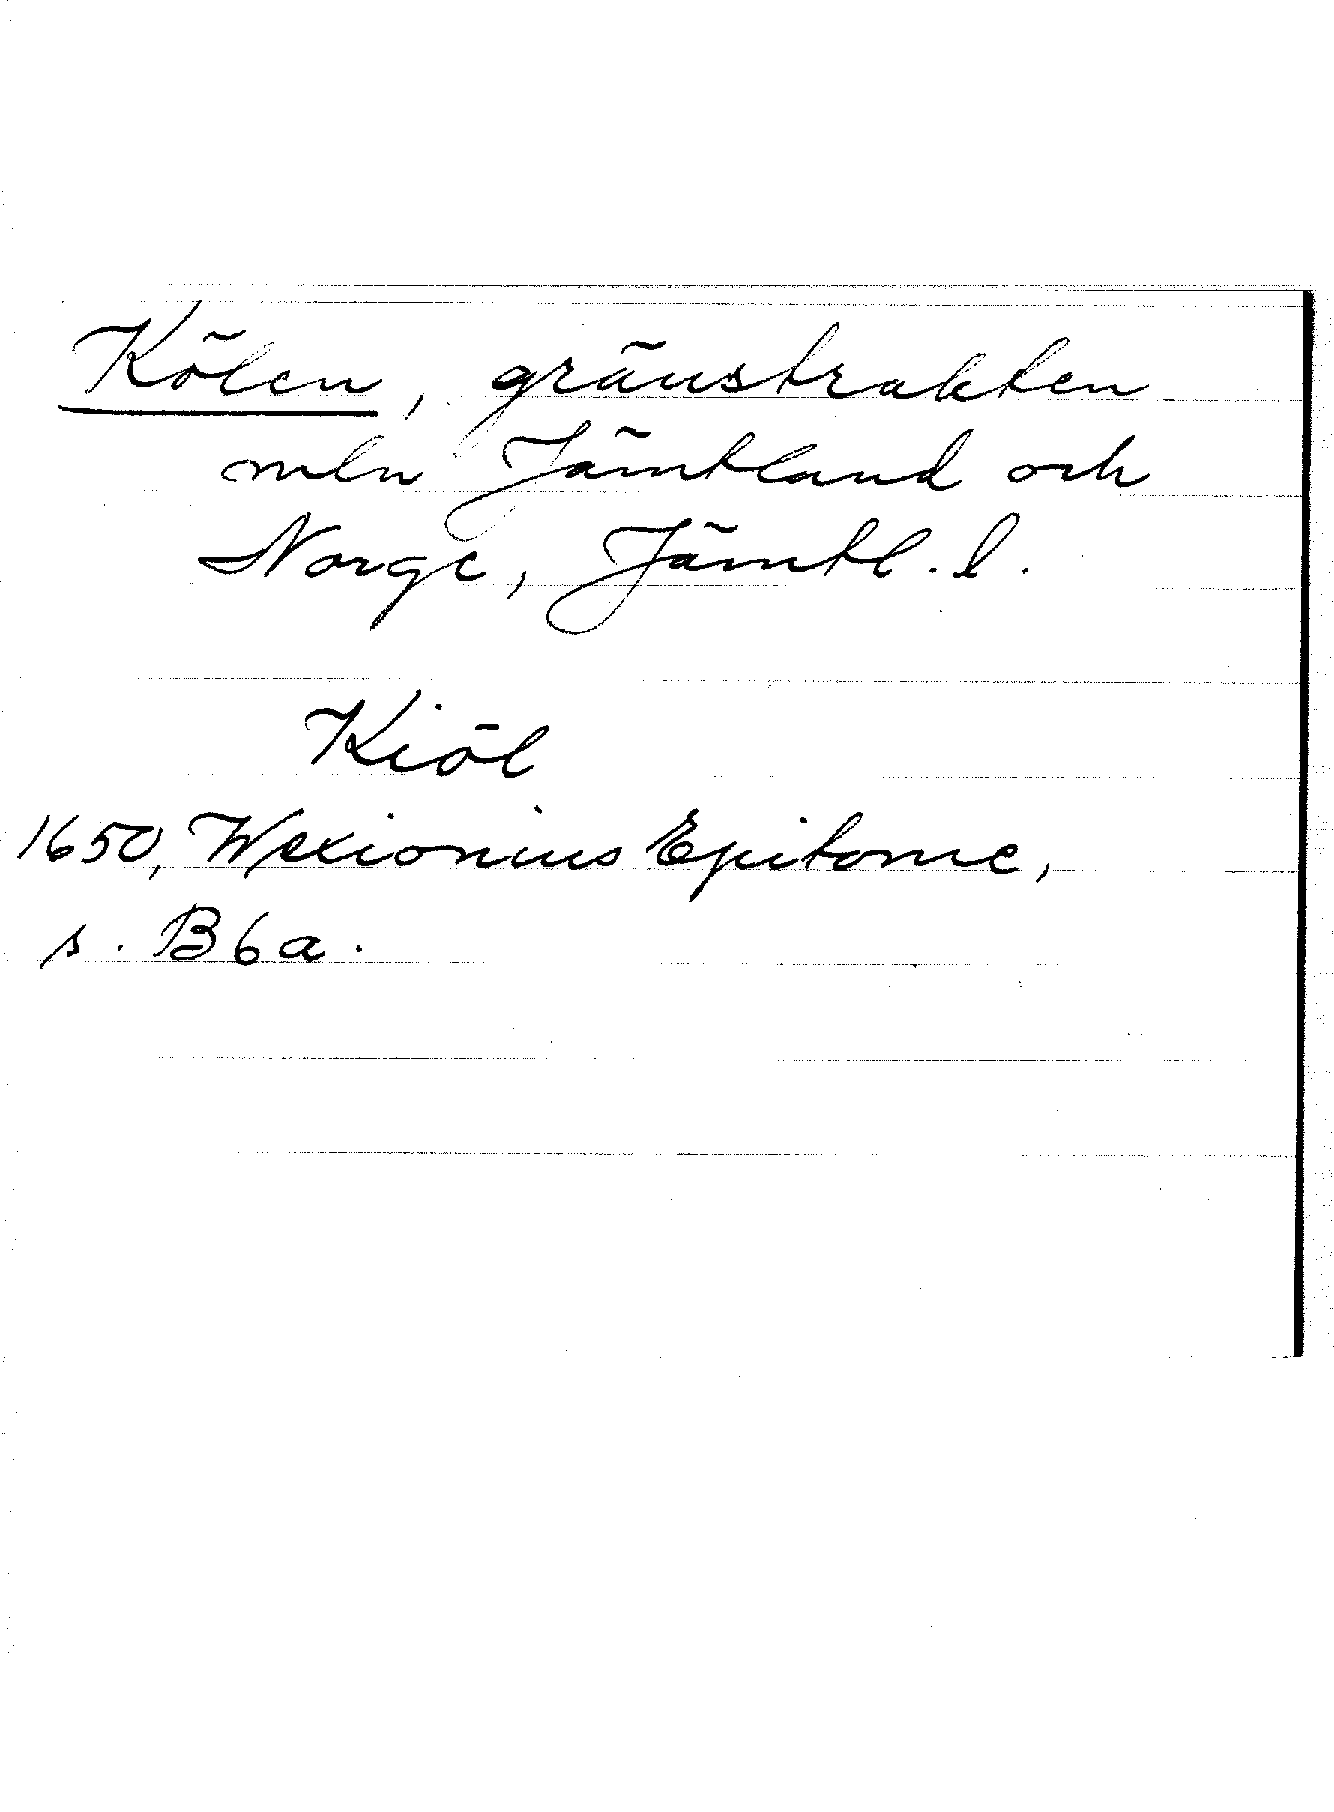 Kölen, gränstrakten
mln Jämtland och
Norge, Jämtl. l.
Kiöl
1650, Wexionius Epitome,
s. B6a.